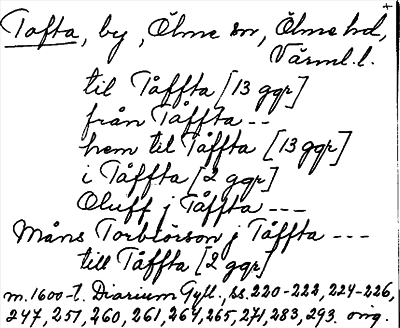 Tofta, by, Ölme sn, Ölme hd,
Värml. l.
til Tåffta [13 ggr]
från Tåffta --
hem til Tåffta [13 ggr]
i Tåffta [2 ggr]
Oluff j Tåffta ---
Måns Torbiörson j Tåffta ---
till Tåffta [2 ggr]
m. 1600-t. Diarium Gyll., ss. 220-222, 224-226,
247, 251, 260, 261, 264, 265, 271, 283, 293. orig.